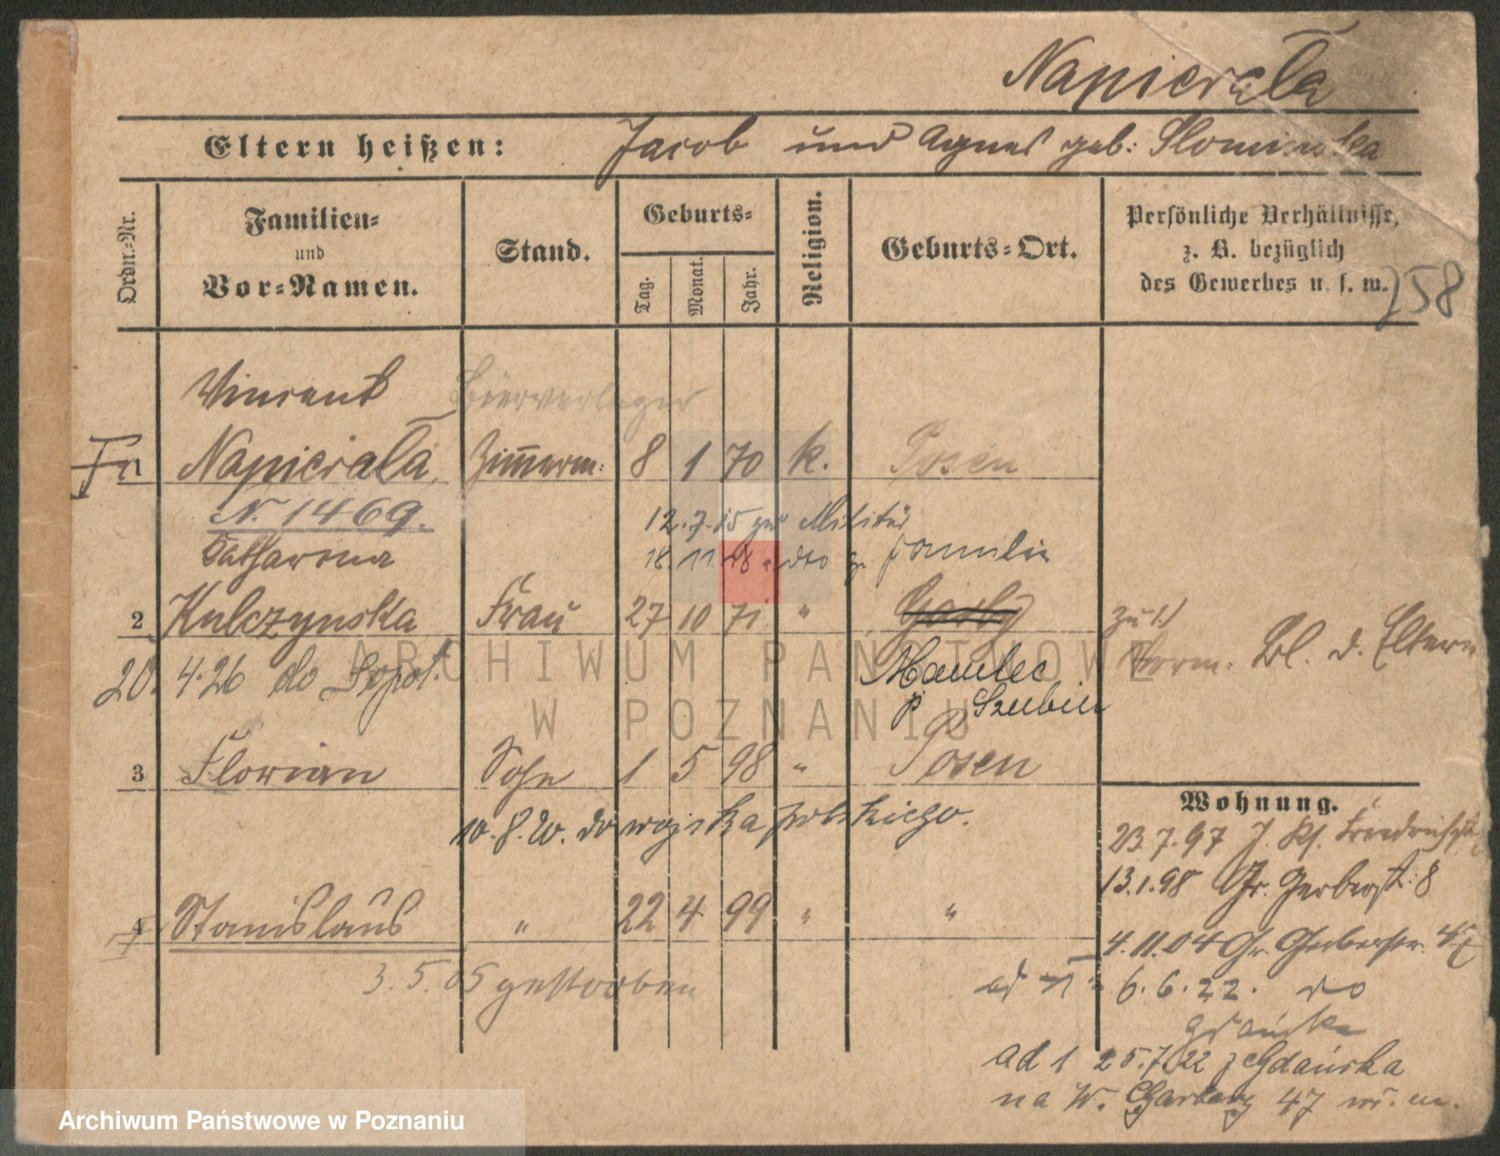 Napierała
Eltern heißen: Jacob und Agnes geb: Slominska
Ordn.-Nr.
Familien-
und
Vor-Namen.
Stand.
Geburts-
Tag.
Monat.
Jahr.
Religion.
Geburts-Ort.
Persönliche Verhältnisse,
z. B. bezüglich
des Gewerbes u. s. w.
258
Vincent Bierverleger
1 Napierała, Zimmerm: 8 1 70 k. Posen
N. 1469.
12.7.15 zum Militär
Catharina
18.11.18 Familie
2 Kulczynska Frau 27 10 71 "
zu 1)
20. 4.26 do Sopot Form. Bl. d. Eltern
p Szubin
3 Florian Sohn 1 5 98 " Posen
Wohnung.
10.8.20. do wojska polskiego.
23.7.97
13.1.98 Gr. Gerberst. 8
4 Stanislaus " 22 4 99 " "
4.11.04 Gr. Gerberstr. 47
3.5.05 gestorben
ad 1 6.6.22. do
Gdańska
ad 1 25.7.22 z Gdańska
na W. Garbary 47
ARCHIWUM PAŃSTWOWE
W POZNANIU
Archiwum Państwowe w Poznaniu